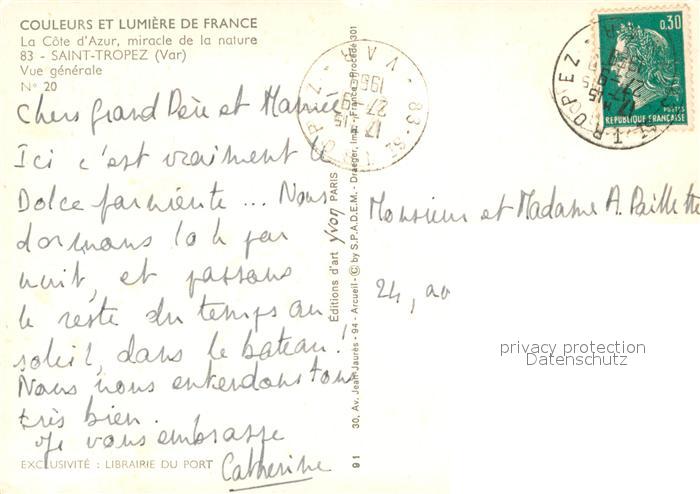 COULEURS ET LUMIÈRE DE FRANCE
La Côte d'Azur, miracle de la nature
83 - SAINT-TROPEZ (Var)
Vue générale
N° 20
Chers grand Père et Mamie
Ici c'est vraiment le
Dolce farniente ... Nous
dormons 10 h par
nuit, et passons
le reste du temps au
soleil, dans le bateau!
Nous nous entendons tous
très bien.
Je vous embrasse
Catherine
EXCLUSIVITÉ : LIBRAIRIE DU PORT
Éditions d'art yvon PARIS
30, Av. Jean Jaurès - 94 - Arcueil - © by S.P.A.D.E.M. - Draeger, Imp. - France - Procédé 301
91
83 - St TROPEZ
VAR
17 15
27-9
0,30
POSTES
REPUBLIQUE FRANÇAISE
Monsieur et Madame A. Paillette
24, av
privacy protection
Datenschutz